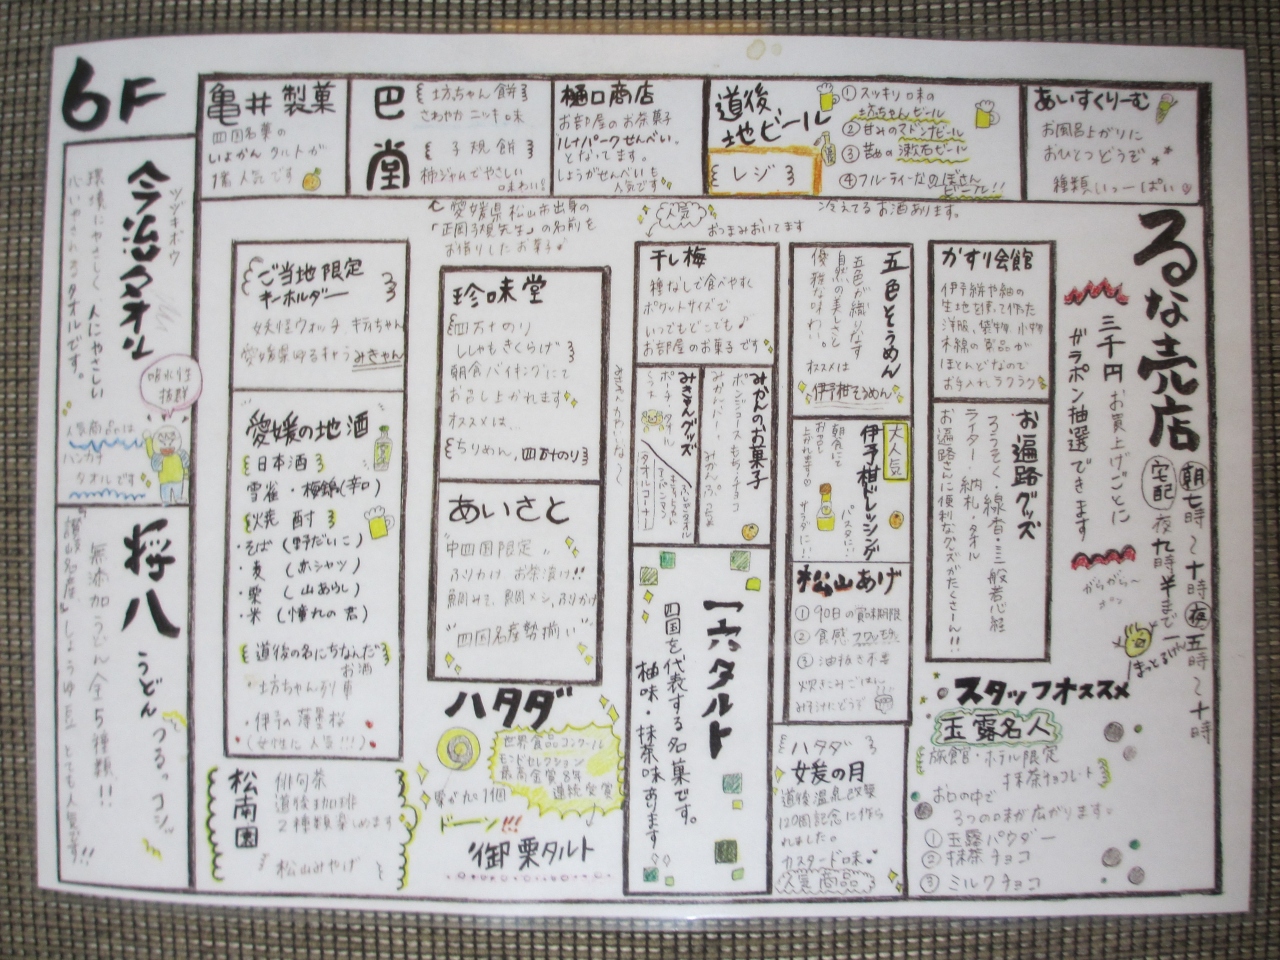 6F
亀井製菓
四国名菓の
いよかんタルトが
1番人気です
巴堂
坊ちゃん餅
さわやかニッキ味
子規餅
柿ジャムでやさしい
味わい
愛媛県松山市出身の
「正岡子規先生」の名前を
お借りしたお菓子♪
樋口商店
お部屋のお茶菓子
ルナパークせんべい。
となってます。
しょうがせんべいも
人気です
人気
おつまみおいてます
道後
地ビール
レジ
①スッキリ味の
坊ちゃんビール
②甘みのマドンナビール
③苦めの漱石ビール
④フルーティーなのぼさん
ビール!!
冷えてるお酒あります。
あいすくりーむ
お風呂上がりに
おひとつどうぞ
種類いっーぱい
るな売店
朝七時～十時 夜五時～十時
宅配 夜九時半まで
三千円お買上げごとに
ガラポン抽選できます
がらがら～
ポン
まっとるけん
今治タオル
環境にやさしく人にやさしい
心いやされるタオルです。
吸水性
抜群
人気商品は
ハンカチ
タオルです
将八
うどん つるっ、コシッ
無添加うどん全5種類!!
"讃岐名産"しょうゆ豆 とても人気です!!
ご当地限定
キーホルダー
妖怪ウォッチ、キティちゃん
愛媛県ゆるキャラみきゃん
愛媛の地酒
日本酒
雪雀・梅錦(辛口)
焼酎
・そば(野だいこ)
・麦(赤シャツ)
・栗(山あらし)
・米(憧れの君)
道後の名にちなんだ
お酒
・坊ちゃん列車
・伊予の薄墨桜
(女性に人気!!!)
松南園
俳句茶
道後珈琲
2種類楽しめます
松山みやげ
と
珍味堂
四万十のり
ししゃもきくらげ
朝食バイキングにて
お召し上がれます
オススメは、
ちりめん、四万十のり
あいさと
"中四国限定"
ふりかけ お茶漬け!!
鯛みそ、鯛メシ、ふりかけ
"四国名産勢揃い"
ハタダ
世界食品コンクール
モンドセレクション
最高金賞8年
連続受賞
栗がたっ1個
ドーン!!!
御栗タルト
干し梅
種なしで食べやすく
ポケットサイズで
いつでもどこでも♪
お部屋のお菓子です
みきゃんグッズ
ポーチ、タオル
タオルコーナー
みかんのお菓子
一六タルト
四国を代表する名菓です。
柚味・抹茶味あります
五色そうめん
五色が織りなす
自然の美しさと
優雅な味わい。
オススメは
伊予柑そうめん
大人気
伊予柑ドレッシング
朝食にて
お召し
上がれます
パスタに!!
サラダに!!
松山あげ
①90日の賞味期限
②食感フワッモチッ
③油抜き不要
炊きこみごはん
みそ汁にどうぞ
ハタダ
媛の月
道後温泉改築
120周記念に作ら
れました。
カスタード味
人気商品
かすり会館
伊予絣や紬の
生地を使って作った
洋服、袋物、小物
木綿の商品が
ほとんどなので
お手入れラクラク
お遍路グッズ
ろうそく・線香・三般若心経
ライター・納札・タオル
お遍路さんに便利なグッズがたくさーん!!
スタッフオススメ
玉露名人
旅館・ホテル限定
抹茶チョコレート
お口の中で
3つの味が広がります。
①玉露パウダー
②抹茶チョコ
③ミルクチョコ